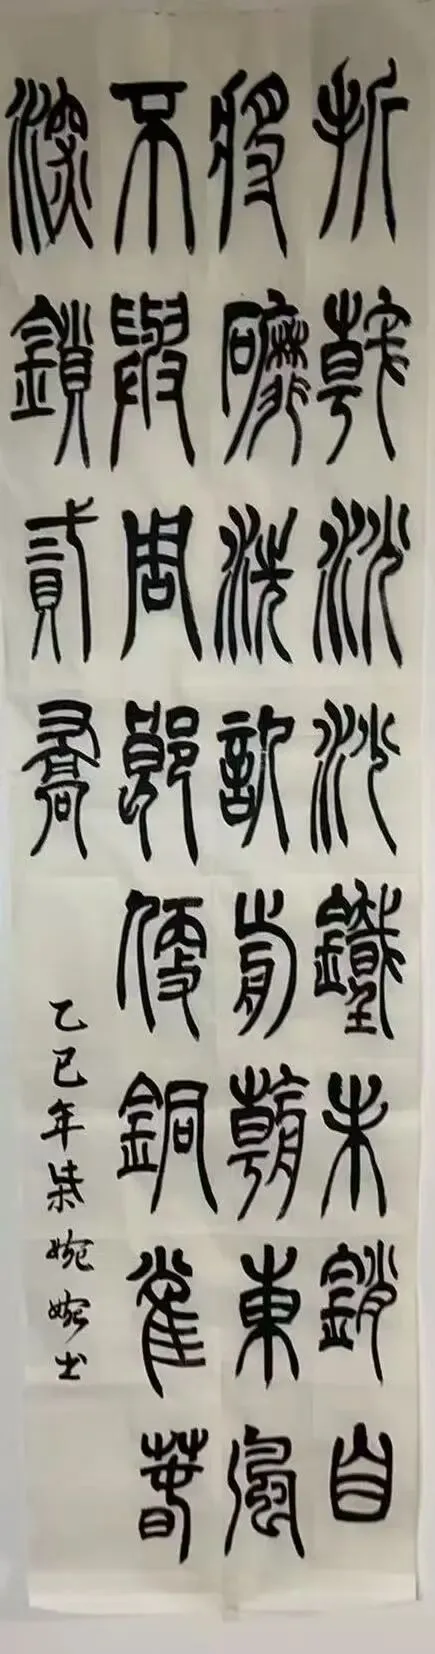 折戟沉沙鐵未銷自
將磨洗認前朝東風
不與周郎便銅雀春
深鎖貳喬
乙巳年柴婉婉书